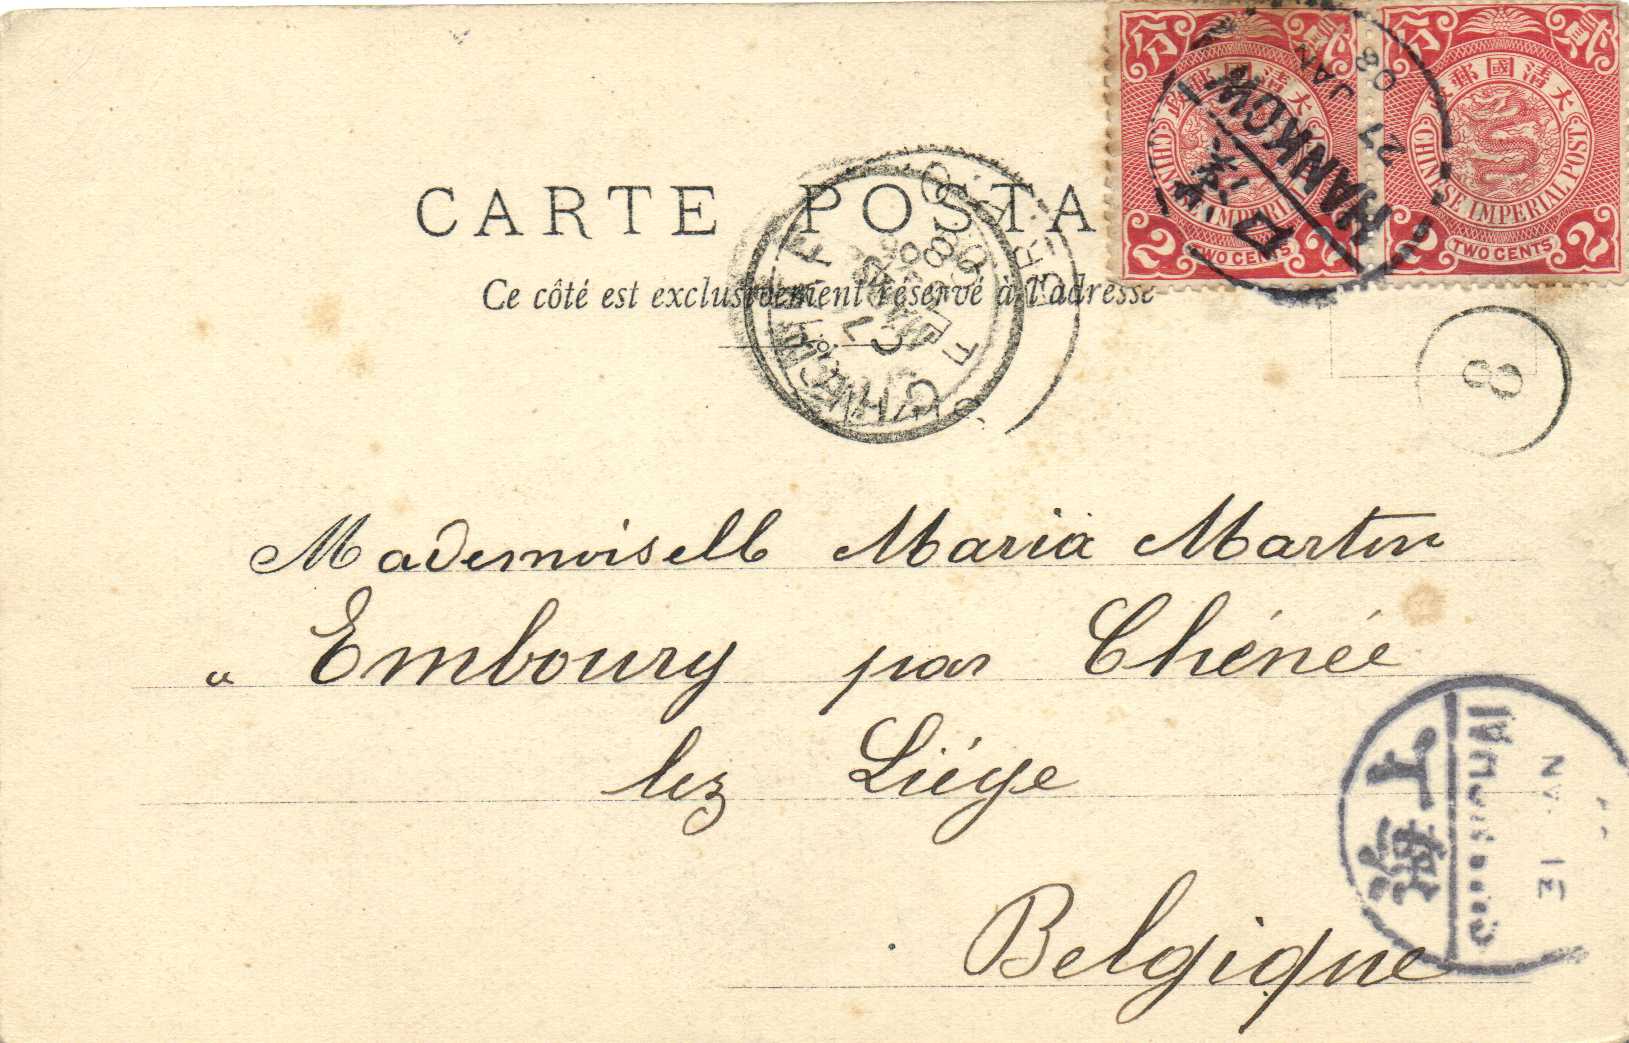 CARTE POSTA
Ce côté est exclusivement réservé à l'adresse
大清國郵政
CHINESE IMPERIAL POST
分 貳
2 TWO CENTS 2
大清國郵政
CHINESE IMPERIAL POST
分 貳
2 TWO CENTS 2
HANKOW
漢口
27 JAN 03
CHÊNÉE
MARS
8
Mademoiselle Maria Martin
à Embourg par Chênée
lez Liége
Belgique